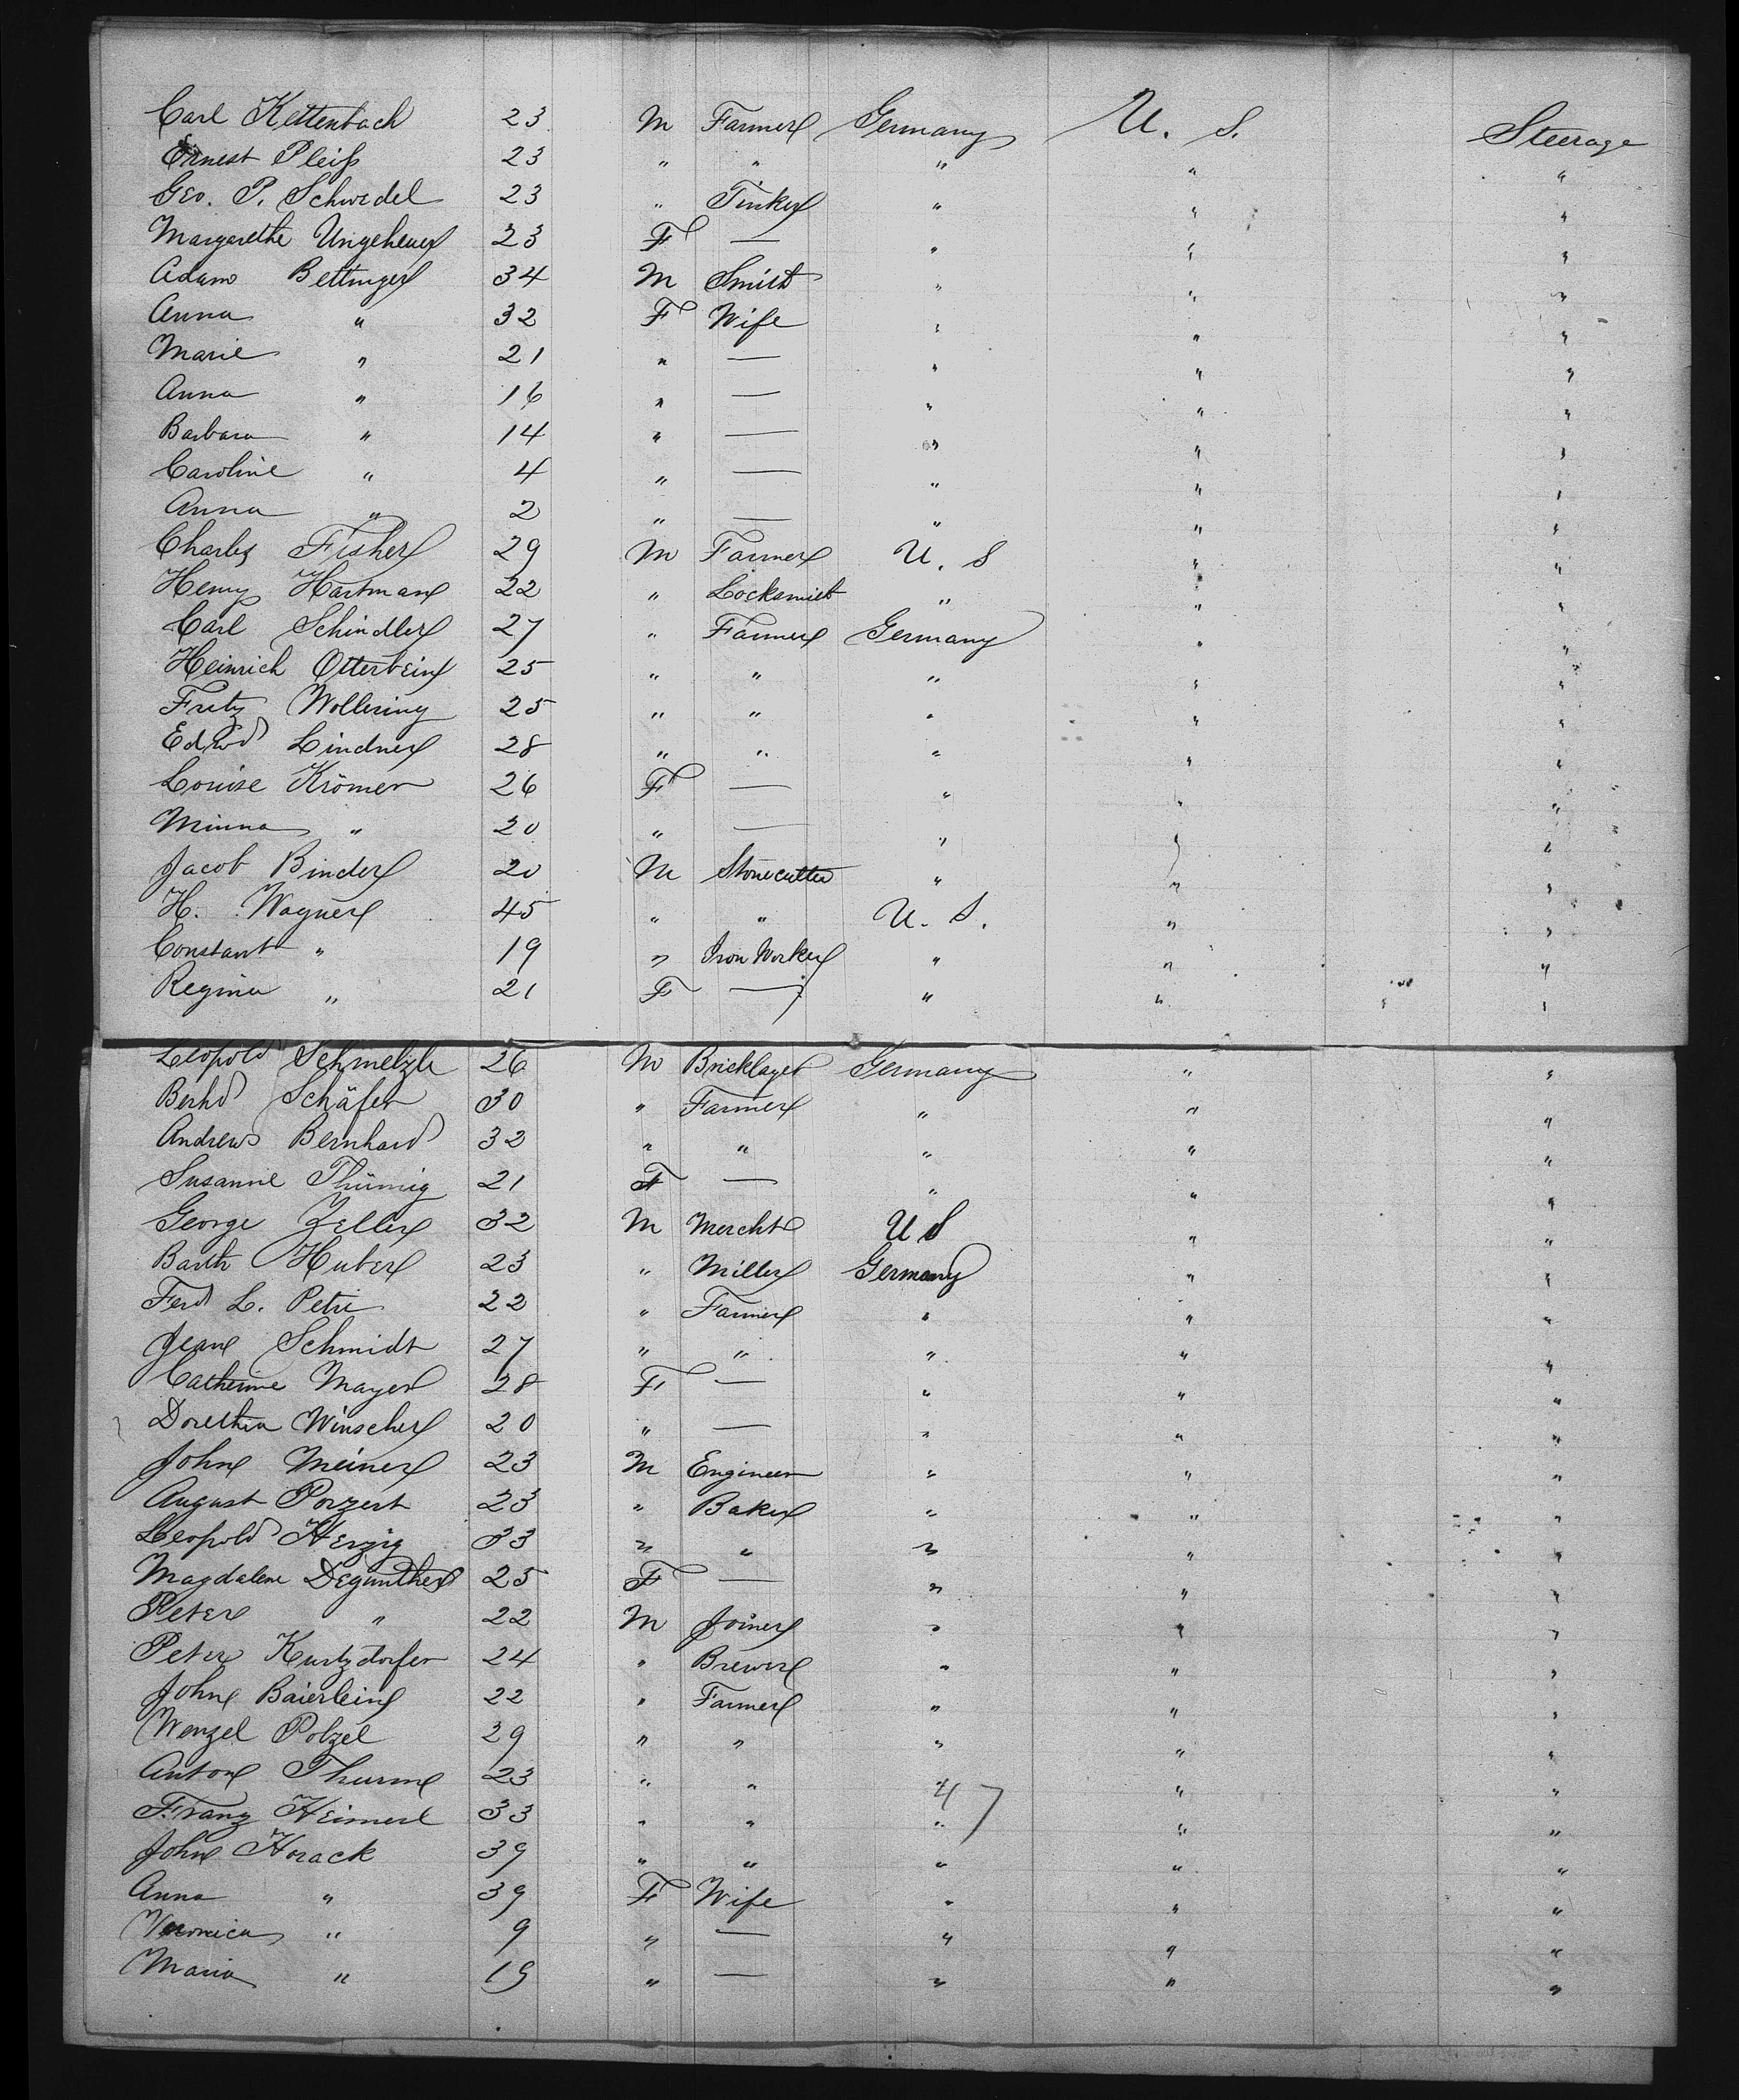 Carl Kettenbach 23 M Farmer Germany U. S. Steerage
Ernest Pleiß 23 " " " " "
Geo. P. Schwedel 23 " Tinker " " "
Margarethe Ungeheuer 23 F — " " "
Adam Bettinger 34 M Smith " " "
Anna " 32 F Wife " " "
Marie " 21 " — " " "
Anna " 16 " — " " "
Barbara " 14 " — " " "
Caroline " 4 " — " " "
Anna " 2 " — " " "
Charles Fisher 29 M Farmer U. S " "
Henry Hartman 22 " Locksmith " " "
Carl Schindler 27 " Farmer Germany " "
Heinrich Otterbein 25 " " " " "
Fritz Wollering 25 " " " " "
Edwd Lindner 28 " " " " "
Louise Krömer 26 F — " " "
Minna " 20 " — " " "
Jacob Binder 20 M Stonecutter " " "
H. Wagner 45 " " U. S. " "
Constant " 19 " Iron Worker " " "
Regina " 21 F — " " "
Leopold Schmelzle 26 M Bricklayer Germany " "
Berhd Schäfer 30 " Farmer " " "
Andrew Bernhard 32 " " " " "
Susanne Thümig 21 F — " " "
George Zeller 32 M Mercht U S " "
Barth Huber 23 " Miller Germany " "
Ferd L. Petri 22 " Farmer " " "
Jean Schmidt 27 " " " " "
Catherine Mayer 28 F — " " "
Dorethea Winscher 20 " — " " "
John Meiner 23 M Engineer " " "
August Porzert 23 " Baker " " "
Leopold Herzig 33 " " " " "
Magdalene Degunther 25 F — " " "
Peter " 22 M Joiner " " "
Peter Kurtzdorfer 24 " Brewer " " "
John Baierlein 22 " Farmer " " "
Wenzel Polzel 29 " " " " "
Anton Thurm 23 " " " " "
47
Franz Heimerl 33 " " " " "
John Horack 39 " " " " "
Anna " 39 F Wife " " "
Veronica " 9 " — " " "
Maria " 19 " — " " "